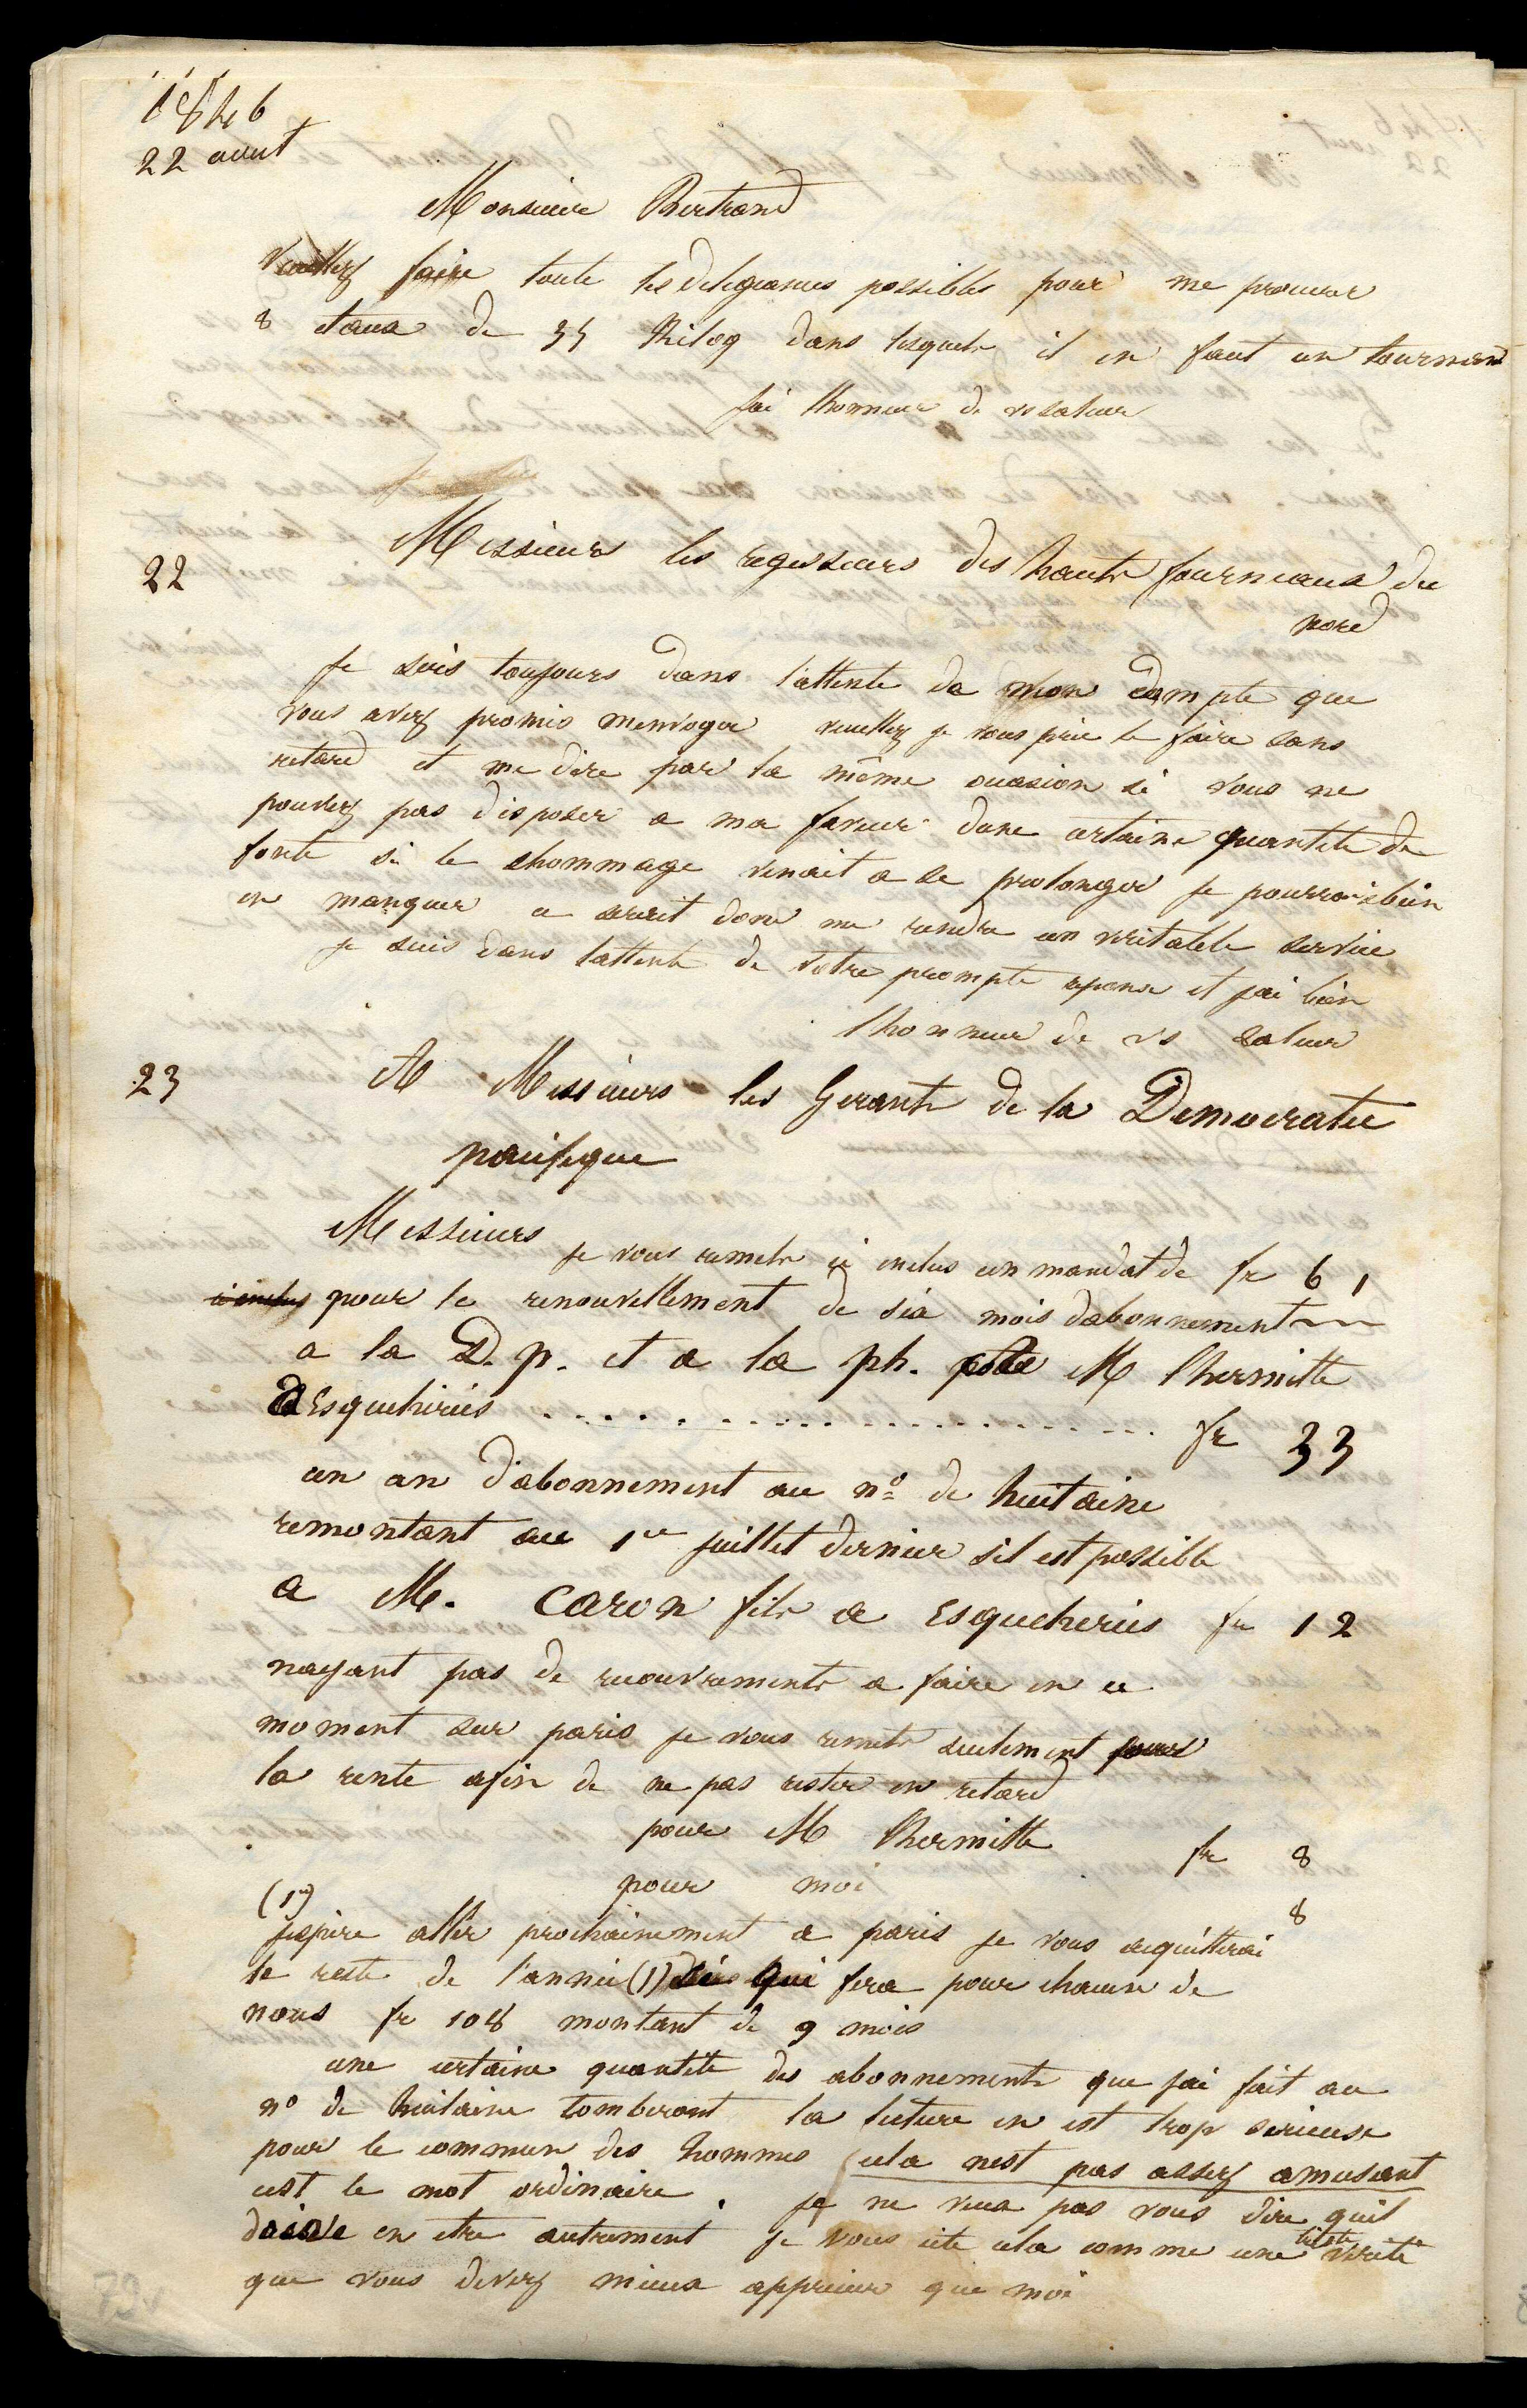 1846
22 aout
Monsieur Bertrand
Veuillez faire toute les deligeances possibles pour me procurer
8 etaux de 35 Kilog dans lesquels il en faut un tournant
jai lhonneur de vs saluer
22
Messieurs les regisseurs des hauts fourneaux du
nord
Je suis toujours dans l'attente de mon compte que
vous avez promis menvoyer veuillez je vous prie le faire sans
retard et me dire par la même ocasion si vous ne
pouvez pas disposer a ma faveur dune certaine quantite de
fonte si le chommage venait a se prolonger je pourrais bien
en manquer ce serait donc me rendre un veritable service
je suis dans lattente de votre prompte reponse et jai bien
lhonneur de vs saluer
23
A Messieurs les Gerants de la Democratie
pacifique
Messieurs
je vous remets ci inclus un mandat de fr 61
ci inclus pour le renouvellement de six mois dabonnement
a la D. p. et a la ph. M lhermitte
d'Esqueheries fr 33
un an d'abonnement au nº de huitaine
remontant au 1er juillet dernier sil est possible
a M. Caron fils a Esqueheries fr 12
nayant pas de recouvrements a faire en ce
moment sur paris je vous remets seulement pour
la rente afin de ne pas rester en retard
pour M lhermitte fr 8
pour moi 8
(1) jespire aller prochainement a paris je vous acquitterai
le reste de l'année (1) qui fera pour chacun de
nous fr 108 montant de 9 mois
une certaine quantité des abonnements que jai fait au
nº de huitaine tomberont la lecture en est trop serieuse
pour le commun des hommes cela nest pas assez amusant
cest le mot ordinaire. je ne veux pas vous dire quil
doive en etre autrement je vous cite cela comme une triste verité
que vous devez mieux apprecier que moi